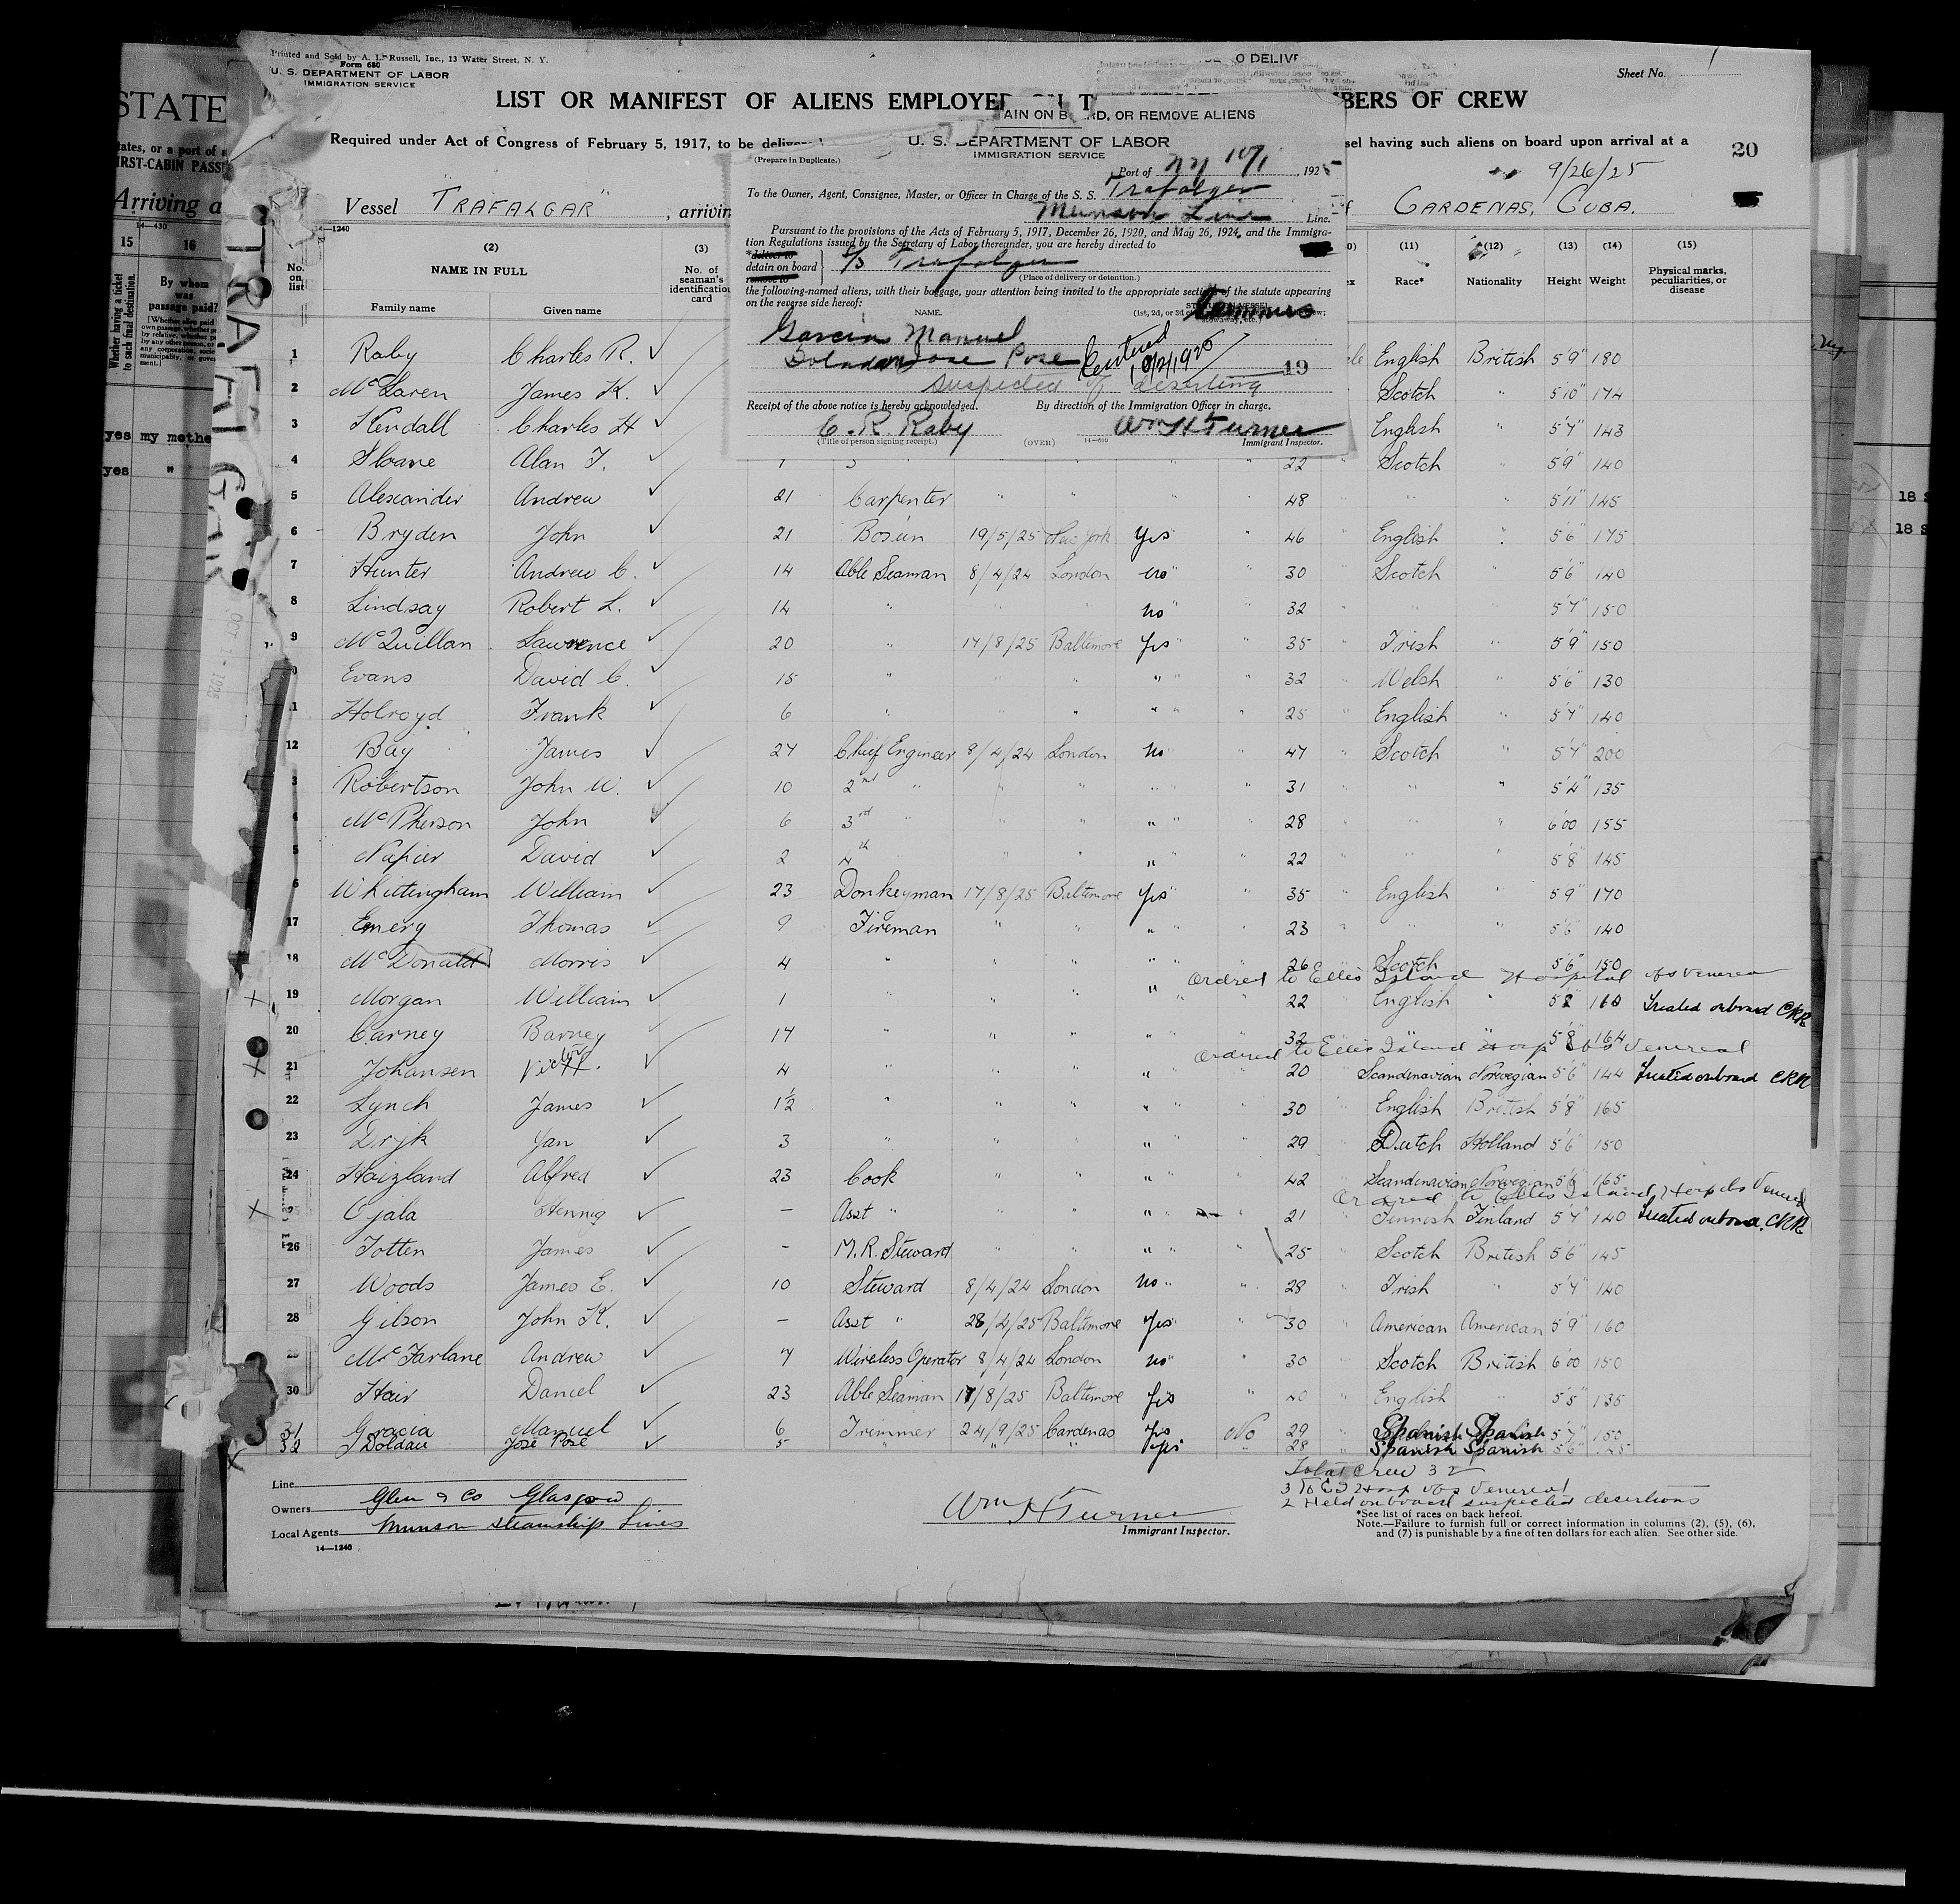 Printed and Sold by A. L. Russell, Inc., 13 Water Street, N. Y.
Form 680
U. S. DEPARTMENT OF LABOR
IMMIGRATION SERVICE
O DELIVE
Sheet No. 1
LIST OR MANIFEST OF ALIENS EMPLOYED ON T
BERS OF CREW
AIN ON B RD, OR REMOVE ALIENS
Required under Act of Congress of February 5, 1917, to be deliver
sel having such aliens on board upon arrival at a
20
U. S. DEPARTMENT OF LABOR
IMMIGRATION SERVICE
(Prepare in Duplicate.)
Port of NY 10/1, 1925
9/26/25
To the Owner, Agent, Consignee, Master, or Officer in Charge of the S. S. Trafalgar
Munson Line Line.
Vessel "TRAFALGAR", arrivin
CARDENAS, CUBA.
Pursuant to the provisions of the Acts of February 5, 1917, December 26, 1920, and May 26, 1924, and the Immigra-
tion Regulations issued by the Secretary of Labor thereunder, you are hereby directed to
*deliver to
detain on board
remove to
S/S Trafalgar
(Place of delivery or detention.)
the following-named aliens, with their baggage, your attention being invited to the appropriate sections of the statute appearing
on the reverse side hereof:
NAME.
Garcia Manuel
Jose Pose
10/2/1925
19
suspected of deserting
Receipt of the above notice is hereby acknowledged. By direction of the Immigration Officer in charge.
C. R. Raby Wm H Turner
(Title of person signing receipt.) (OVER) 14—689 Immigrant Inspector.
14—1240
No. on list (2) NAME IN FULL (3) No. of seaman's identification card (11) Race* (12) Nationality (13) Height (14) Weight (15) Physical marks, peculiarities, or disease
Family name Given name
1 Raby Charles R. English British 5'9" 180
2 McLaren James K. Scotch " 5'10" 174
3 Kendall Charles H English " 5'7" 143
4 Sloane Alan T. 22 Scotch " 5'9" 140
5 Alexander Andrew 21 Carpenter " " " " 48 " " 5'11" 145
6 Bryden John 21 Bosun 19/5/25 New York Yes " 46 English " 5'6" 175
7 Hunter Andrew C. 14 Able Seaman 8/4/24 London no " 30 Scotch " 5'6" 140
8 Lindsay Robert L. 14 " " " no " 32 " " 5'7" 150
9 McQuillan Lawrence 20 " 17/8/25 Baltimore Yes " 35 Irish " 5'9" 150
Evans David C. 15 " " " " " 32 Welsh " 5'6" 130
1 Holroyd Frank 6 " " " " " 25 English " 5'7" 140
12 Bay James 27 Chief Engineer 8/4/24 London no " 47 Scotch " 5'7" 200
3 Robertson John W. 10 2nd " " " " " 31 " " 5'4" 135
McPherson John 6 3rd " " " " " 28 " " 6'00 155
5 Napier David 2 4th " " " " " 22 " " 5'8" 145
6 Whittingham William 23 Donkeyman 17/8/25 Baltimore Yes " 35 English " 5'9" 170
17 Emery Thomas 9 Fireman " " " " 23 " " 5'6" 140
18 McDonald Morris 4 " " " " " 26 Scotch 5'6" 150
Ordred to Ellis Island Hospital obs venereal
19 Morgan William 1 " " " " " 22 English " 5'8" 160 Treated onboard CRR
20 Carney Barney 14 " " " " " 32 " " 5'8" 164
Ordered to Ellis Island Hosp obs Venereal
21 Johansen 4 " " " " 20 Scandinavian Norwegian 5'6" 144 Treated onboard CRR
22 Lynch James 1½ " " " " " 30 English British 5'8" 165
23 Dryk Jan 3 " " " " " 29 Dutch Holland 5'6" 150
24 Haizland Alfred 23 Cook " " " " 42 Scandinavian Norwegian 5'6" 165
Ordered to Ellis Island Hosp obs Venereal
Ojala Hennig — Asst " " " " 21 Finnish Finland 5'7" 140 Treated onboard. CRR
26 Totten James - M.R. Steward " " " " 25 Scotch British 5'6" 145
27 Woods James E. 10 Steward 8/4/24 London no " 28 Irish " 5'7" 140
28 Gilson John K. — Asst " 28/4/25 Baltimore Yes " 30 American American 5'9" 160
McFarlane Andrew 7 Wireless Operator 8/4/24 London no " 30 Scotch British 6'00 150
30 Hair Daniel 23 Able Seaman 17/8/25 Baltimore Yes " 40 English " 5'5" 135
31 Gracia Manuel 6 Trimmer 24/9/25 Cardenas Yes No 29 Spanish Spanish 5'7" 150
32 Doldau Jose Pose 5 " " " Yes " 28 Spanish Spanish 5'6" 125
Line
Owners Glen & Co Glasgow
Local Agents Munson Steamship Lines
14—1240
Wm H Turner
Immigrant Inspector.
Total crew 32
3 To E I Hosp obs Venereal
2 Held onboard suspected desertions
*See list of races on back hereof.
Note.—Failure to furnish full or correct information in columns (2), (5), (6),
and (7) is punishable by a fine of ten dollars for each alien. See other side.
STATE
tates, or a port of a
IRST-CABIN PASS
Arriving a
14—430
15 16
Whether having a ticket to such final destination.
By whom was passage paid?
yes my mothe
yes "
TRAFALGAR
OCT 1 - 1925
18 S
18 S